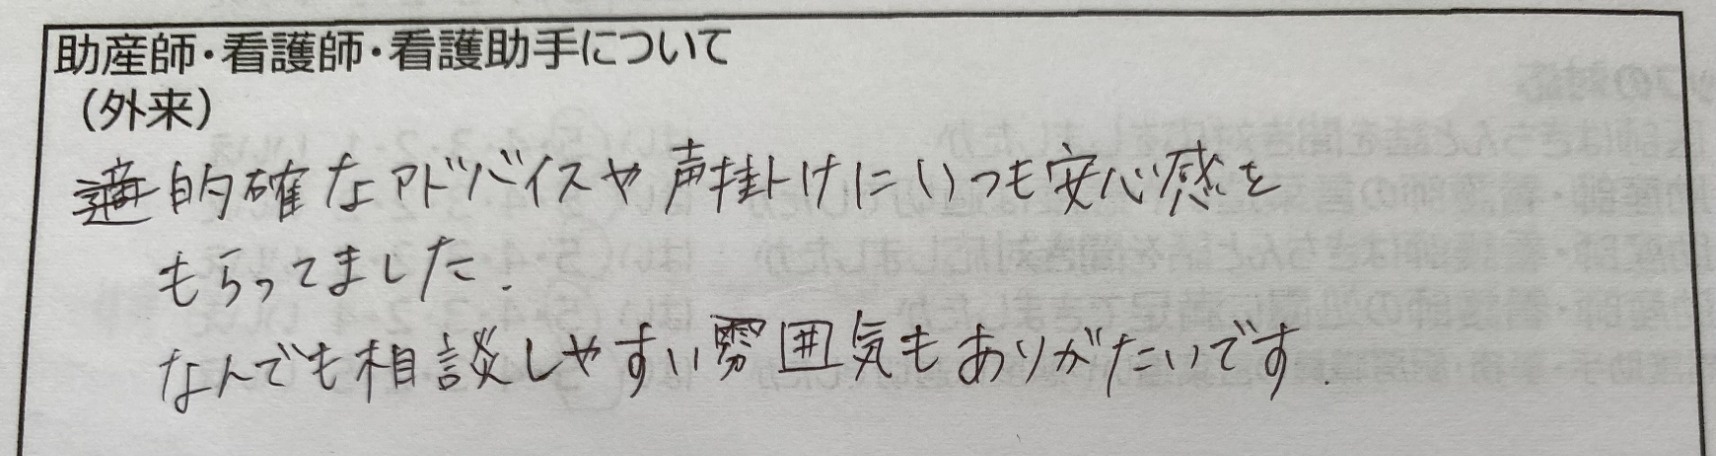 助産師・看護師・看護助手について
（外来）
的確なアドバイスや声掛けにいつも安心感を
もらってました．
なんでも相談しやすい雰囲気もありがたいです．